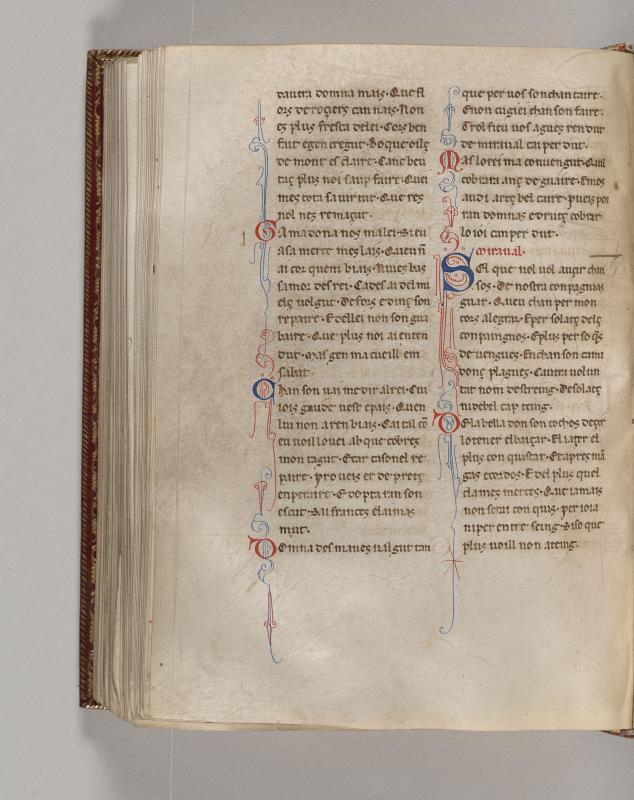 tautra domna mais. Que fl
ors de rogiers can nais. Non
es plus fresca de lei. Cors ben
fait e gen cregut. Bo que oilz
de mont es claire. Canc beu
taz plus noi saup faire. Quei
mes tota sa uirtut. Que res
nol nes remazut.
Sa madona nes mal ei. Si eu
a sa merce mes lais. Queu n
ai cor quem biais. Niues bas
samor desrei. Cades ai del mi
elz uolgut. Defors e dinz son
repaire. E dellei non son gua
baire. Que plus noi ai enten
dut. Mas gen macueill em
salut.
Chanson uai me dir al rei. Cui
iois gaude uest e pais. Quen
lui non aren biais. Cai tal co
eu uoill ouei. Ab que cobres
mon tagut. Et ar casonel re
paire. Proueis er de pretz
enperaire. E dopta ran son
escut. Sai frances e lai mas
mut.
Domna desmaues ualgut tan
que per uos son chantaire.
E non cugiei chanson faire.
Trol fieu uos agues rendut
de miraual cai perdut.
Mas lo rei ma conuengut. Quil
cobrara anz de guaire. E mos
audiartz bel caire. Pueis poi
ran domnas e drutz cobrar
lo ioi can perdut.
Miraual.
Sel que no uol auzir chan
sos. De nostra conpagnias
guar. Queu chan per mon
cors alegrar. E per solatz dels
conpaingnos. E plus per so qs
deuengues. En chanson cami
donz plagues. Cautra uolun
tat nom destreing. De solatz
ni de bel cap teing.
De la bella don son cochos dezir
lo tener el baizar. El iazer el
plus conquistar. Et apres ma
gas e cordos. E del plus quel
clames merces. Que iamais
non serai conquis. Per ioia
ni per entreseing. Si so que
plus uoill non ateing.